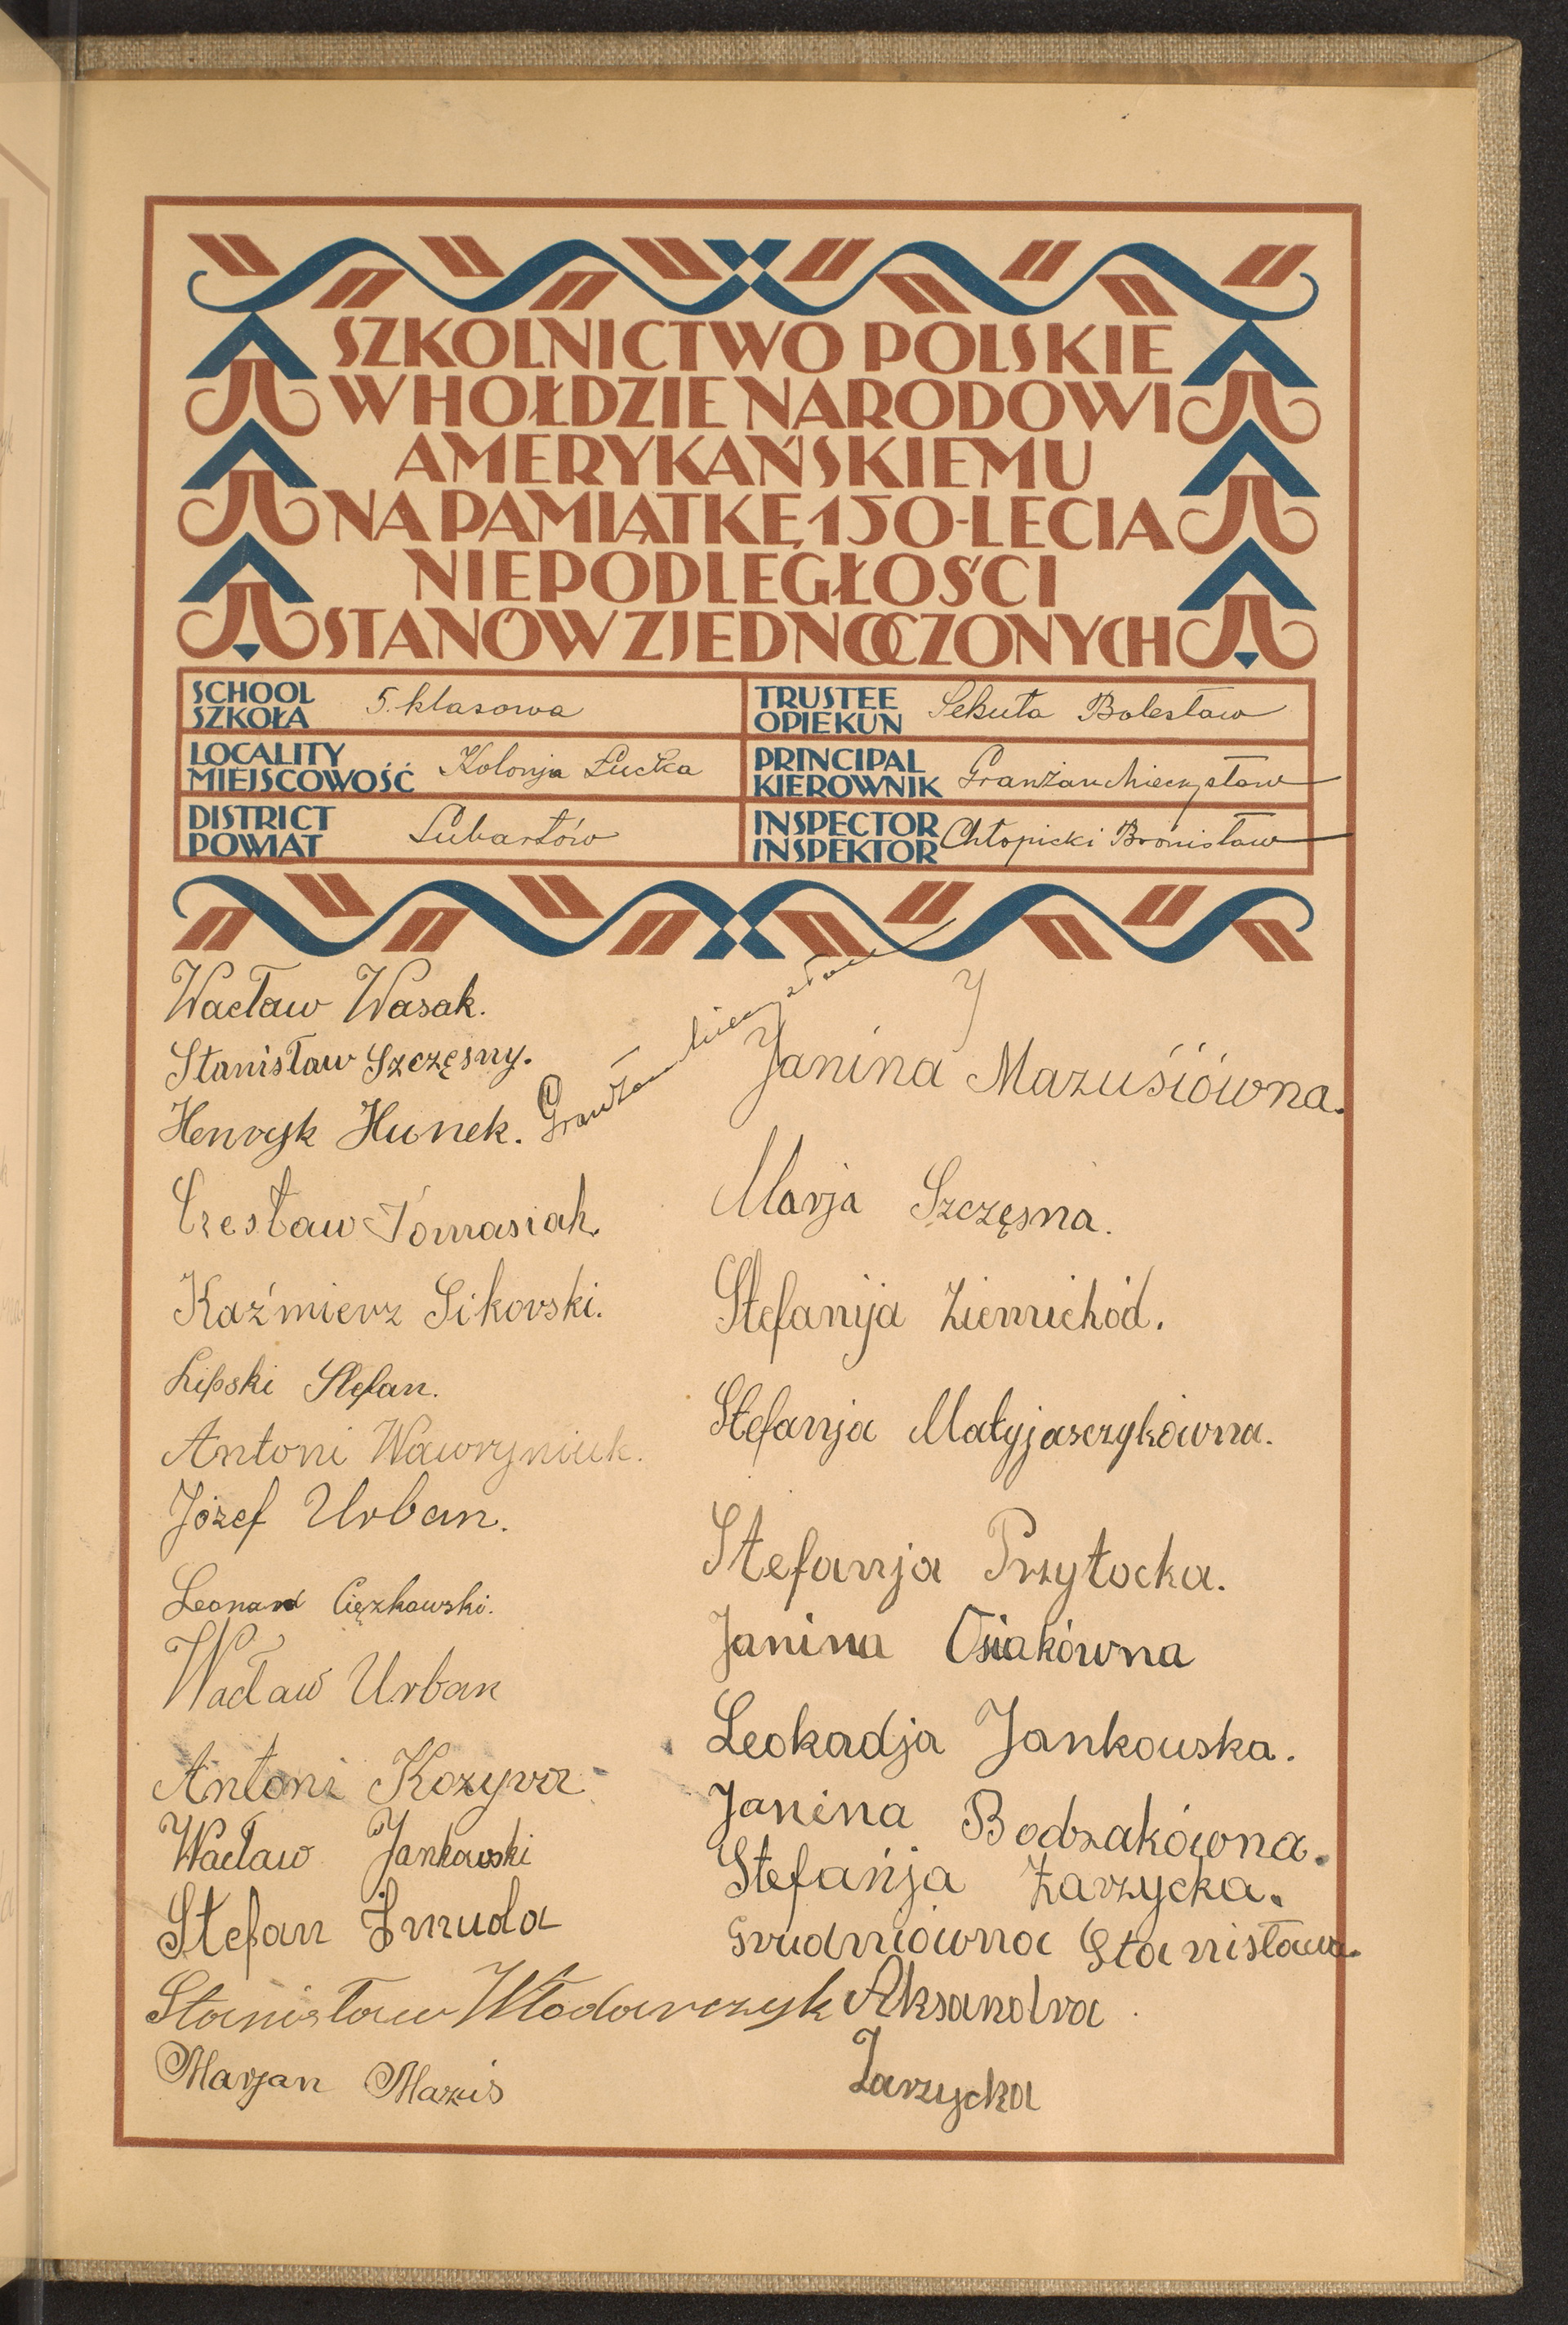 SZKOLNICTWO POLSKIE
W HOŁDZIE NARODOWI
AMERYKAŃSKIEMU
NA PAMIĄTKĘ 150-LECIA
NIEPODLEGŁOŚCI
STANÓW ZJEDNOCZONYCH
SCHOOL
SZKOŁA 5. klasowa
TRUSTEE
OPIEKUN Sekuła Bolesław
LOCALITY
MIEJSCOWOŚĆ Kolonja Łucka
PRINCIPAL
KIEROWNIK Granżan Mieczysław
DISTRICT
POWIAT Lubartów
INSPECTOR
INSPEKTOR Chłopicki Bronisław
Wacław Wasak.
Stanisław Szczęsny.
Henryk Hunek.
Granżan Mieczysław
Czesław Tomasiak.
Kaźmierz Sikorski.
Lipski Stefan.
Antoni Wawryniuk.
Józef Urban.
Leonard Ciężkowski.
Wacław Urban
Antoni Kozyra
Wacław Jankowski
Stefan Żmuda
Stanisław Włodarczyk
Marjan Mazuś
Janina Mazuśiówna.
Marja Szczęsna.
Stefanija Ziemichód.
Stefanja Matyjasczykówna.
Stefanja Przytocka.
Janina Osiakówna
Leokadja Jankowska.
Janina Bodzakówna.
Stefanja Zarzycka.
Grudniówna Stanisława.
Aksandra
Zarzycka